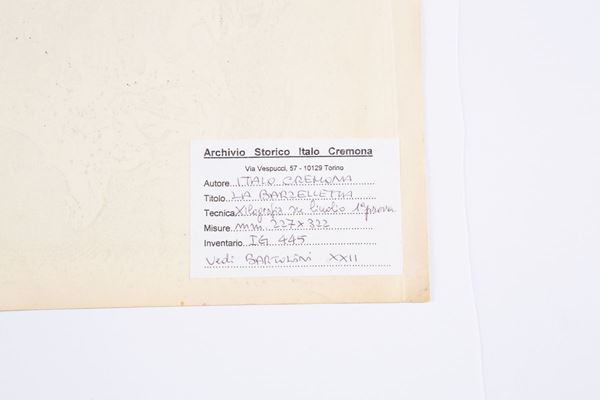 Archivio Storico Italo Cremona
Via Vespucci, 57 - 10129 Torino
Autore...ITALO CREMONA
Titolo...LA BARZELLETTA
Tecnica...Xilografia su linolio 1ª prova
Misure...mm. 227x322
Inventario...IG 445
Vedi BARTOLINI XXII